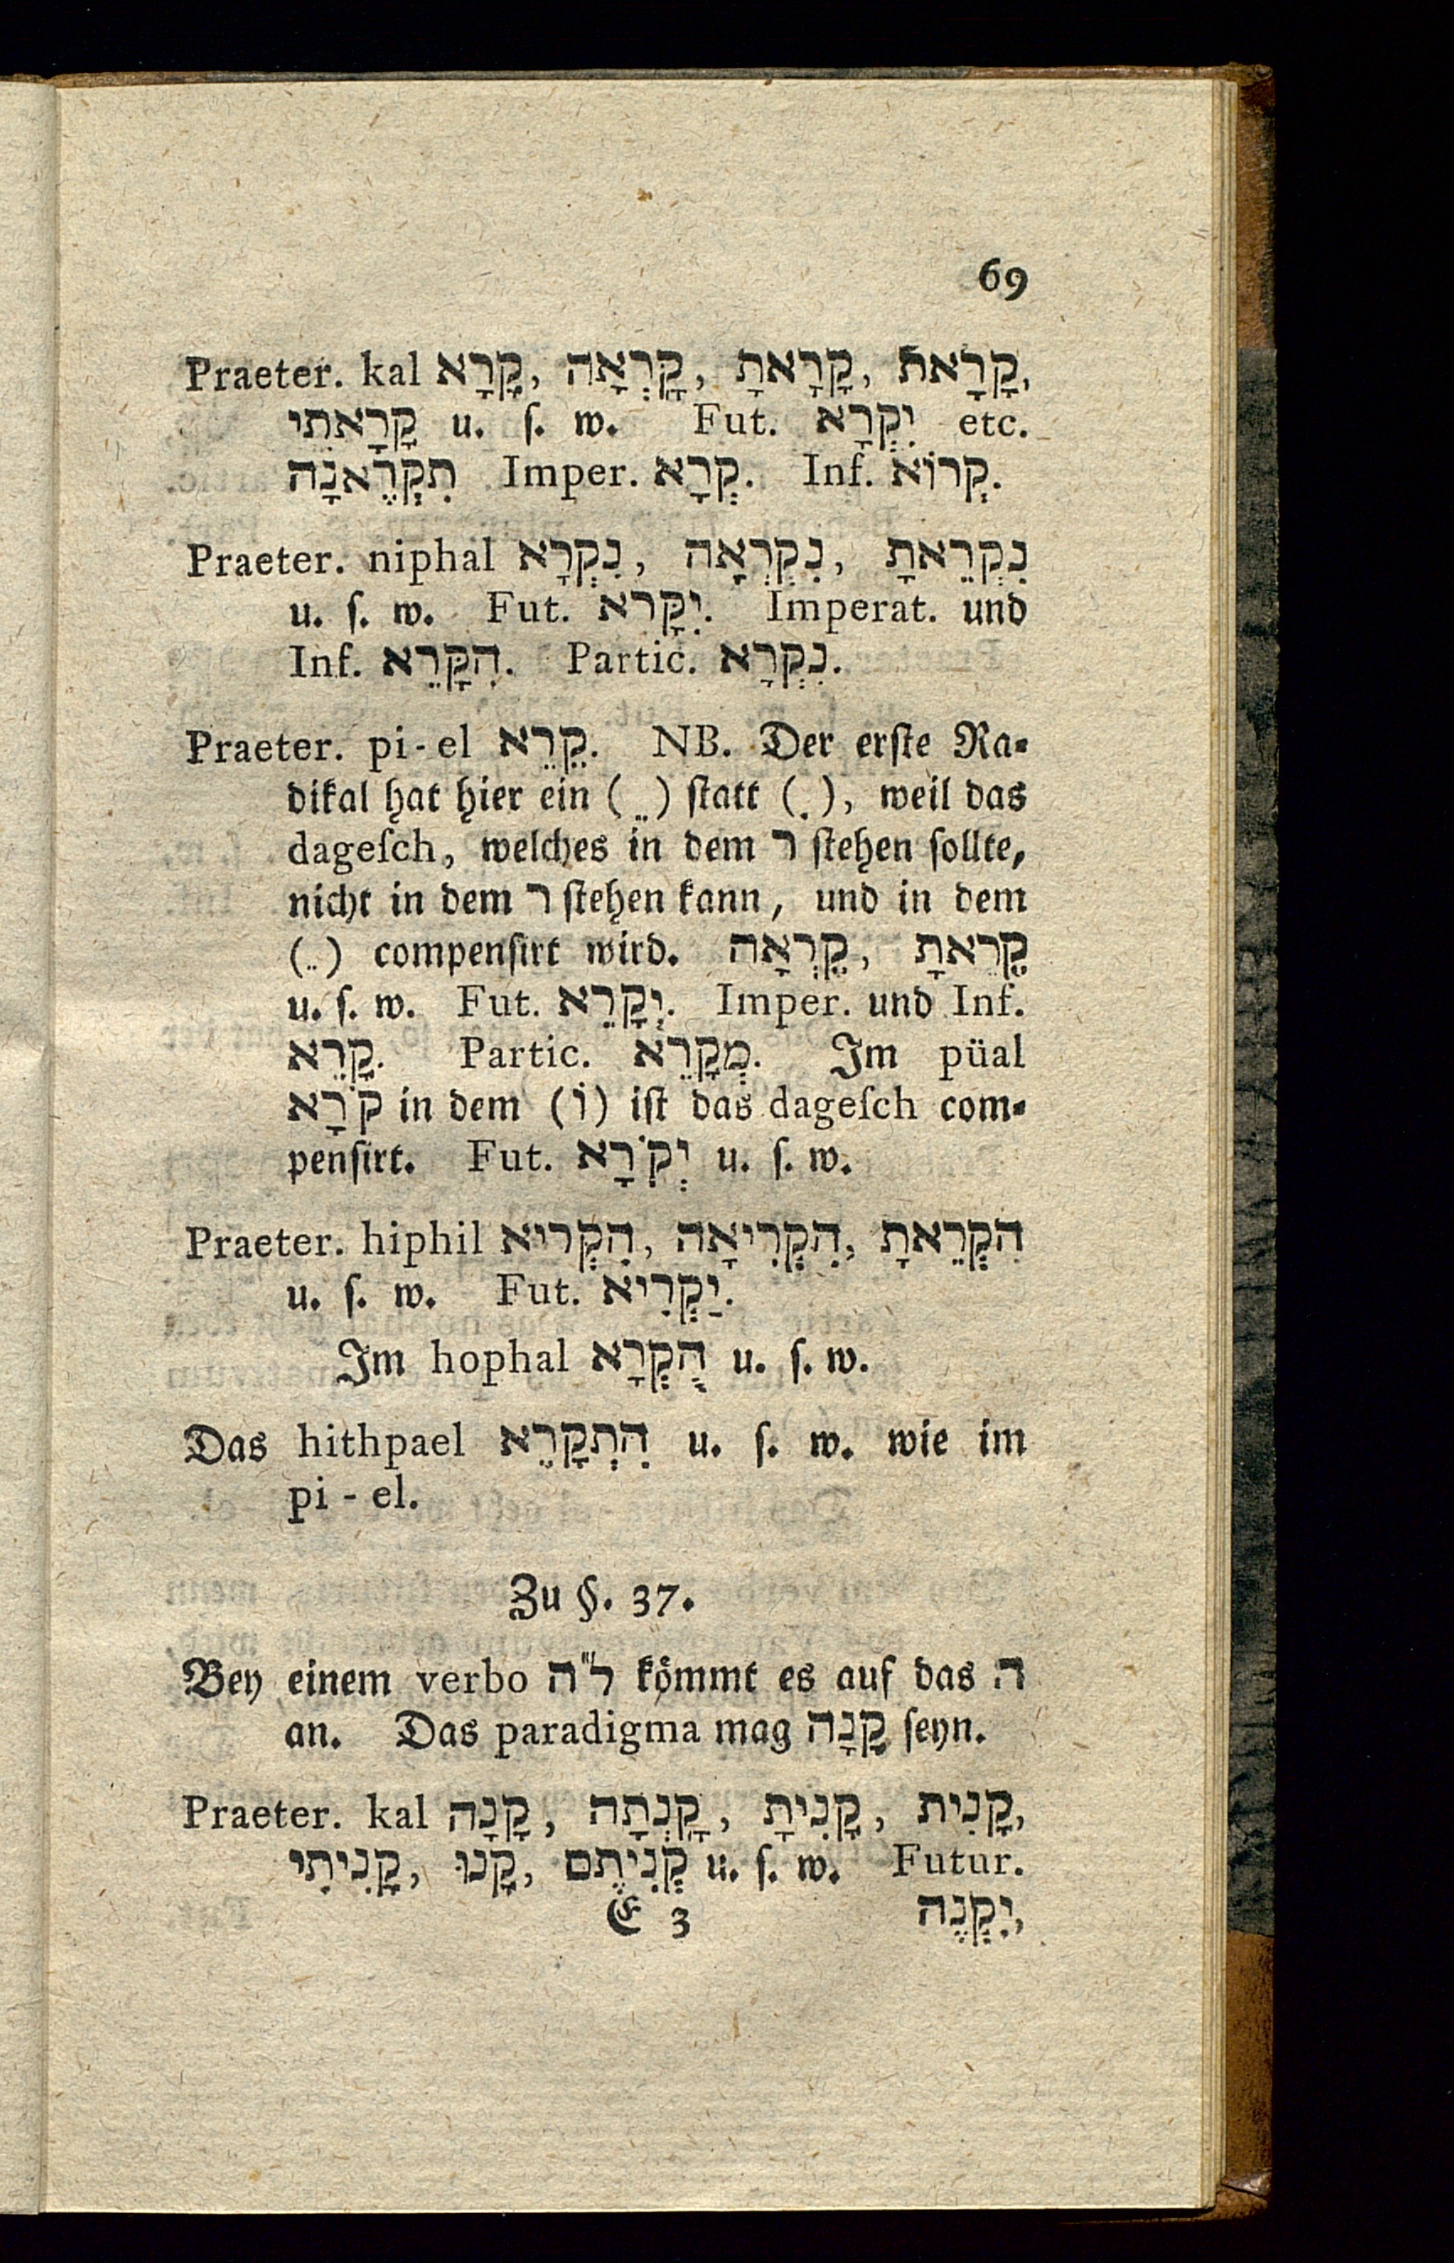 69
Praeter. kal קָרָא, קָרְאָה, קָרָאתָ, קָרָאת,
קָרָאתִי u. ſ. w. Fut. יִקְרָא etc.
תִקְרֶאנָה Imper. קְרָא. Inf. קְרוֹא.
Praeter. niphal נִקְרָא, נִקְרְאָה, נִקְרֵאתָ
u. ſ. w. Fut. יִקָּרא. Imperat. und
Inf. הִקָּרֵא. Partic. נִקְרָא.
Praeter. pi-el קֵרֵא. NB. Der erſte Ra-
dikal hat hier ein ( ֵ ) ſtatt ( ִ ), weil das
dageſch, welches in dem ר ſtehen ſollte,
nicht in dem ר ſtehen kann, und in dem
( ֵ ) compenſirt wird. קֵרְאָה, קֵרֵאתָ
u. ſ. w. Fut. יְקָרֵא. Imper. und Inf.
קָרֵא. Partic. מְקָרֵא. Im püal
קֹרָא in dem (וֹ) iſt das dageſch com-
penſirt. Fut. יְקֹרָא u. ſ. w.
Praeter. hiphil הִקְרִיא, הִקְרִיאָה, הִקְרֵאתָ
u. ſ. w. Fut. יַקְרִיא.
Im hophal הֻקְרָא u. ſ. w.
Das hithpael הִתְקָרֵא u. ſ. w. wie im
pi-el.
Zu §. 37.
Bey einem verbo ל"ה kömmt es auf das ה
an. Das paradigma mag קָנָה ſeyn.
Praeter. kal קָנָה, קָנְתָה, קָנִיתָ, קָנִית,
קָנִיתִי, קָנוּ, קְנִיתֶם u. ſ. w. Futur.
E 3 יִקְנֶה,